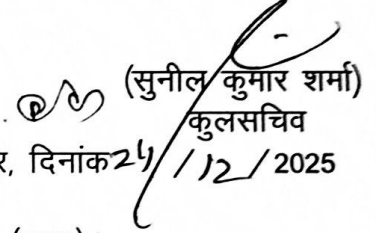 (सुनील कुमार शर्मा)
कुलसचिव
र, दिनांक 24/12/2025